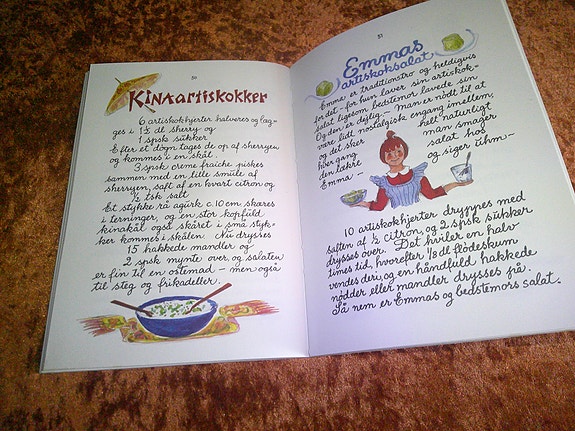 50
Kinaartiskokker
6 artiskokhjerter halveres og læg-
ges i 1½ dl sherry og
1 spsk sukker
Efter et døgn tages de op af sherryen
og kommes i en skål.
3 spsk creme fraiche piskes
sammen med en lille smule af
sherryen, saft af en kvart citron og
½ tsk salt
Et stykke rå agurk c. 10 cm. skæres
i terninger, og en stor kopfuld
kinakål også skåret i små styk-
ker kommes i skålen. Nu drysses
15 hakkede mandler og
2 spsk mynte over, og salaten
er fin til en ostemad – men også
til steg og frikadeller.
51
Emmas
artiskoksalat
Emma er traditionstro og heldigvis
for det – for hun laver sin artiskok-
salat ligesom bedstemor lavede sin
Og den er dejlig – man er nødt til at
være lidt nostalgisk engang imellem,
og det sker helt naturligt
hver gang man smager
den lækre salat hos
Emma – og siger uhm –
10 artiskokhjerter dryppes med
saften af ½ citron, og 2 spsk sukker
drysses over. Det hviler en halv
times tid, hvorefter ⅛ dl flødeskum
vendes deri, og en håndfuld hakkede
nødder eller mandler drysses på.
Så nem er Emmas og bedstemors salat.